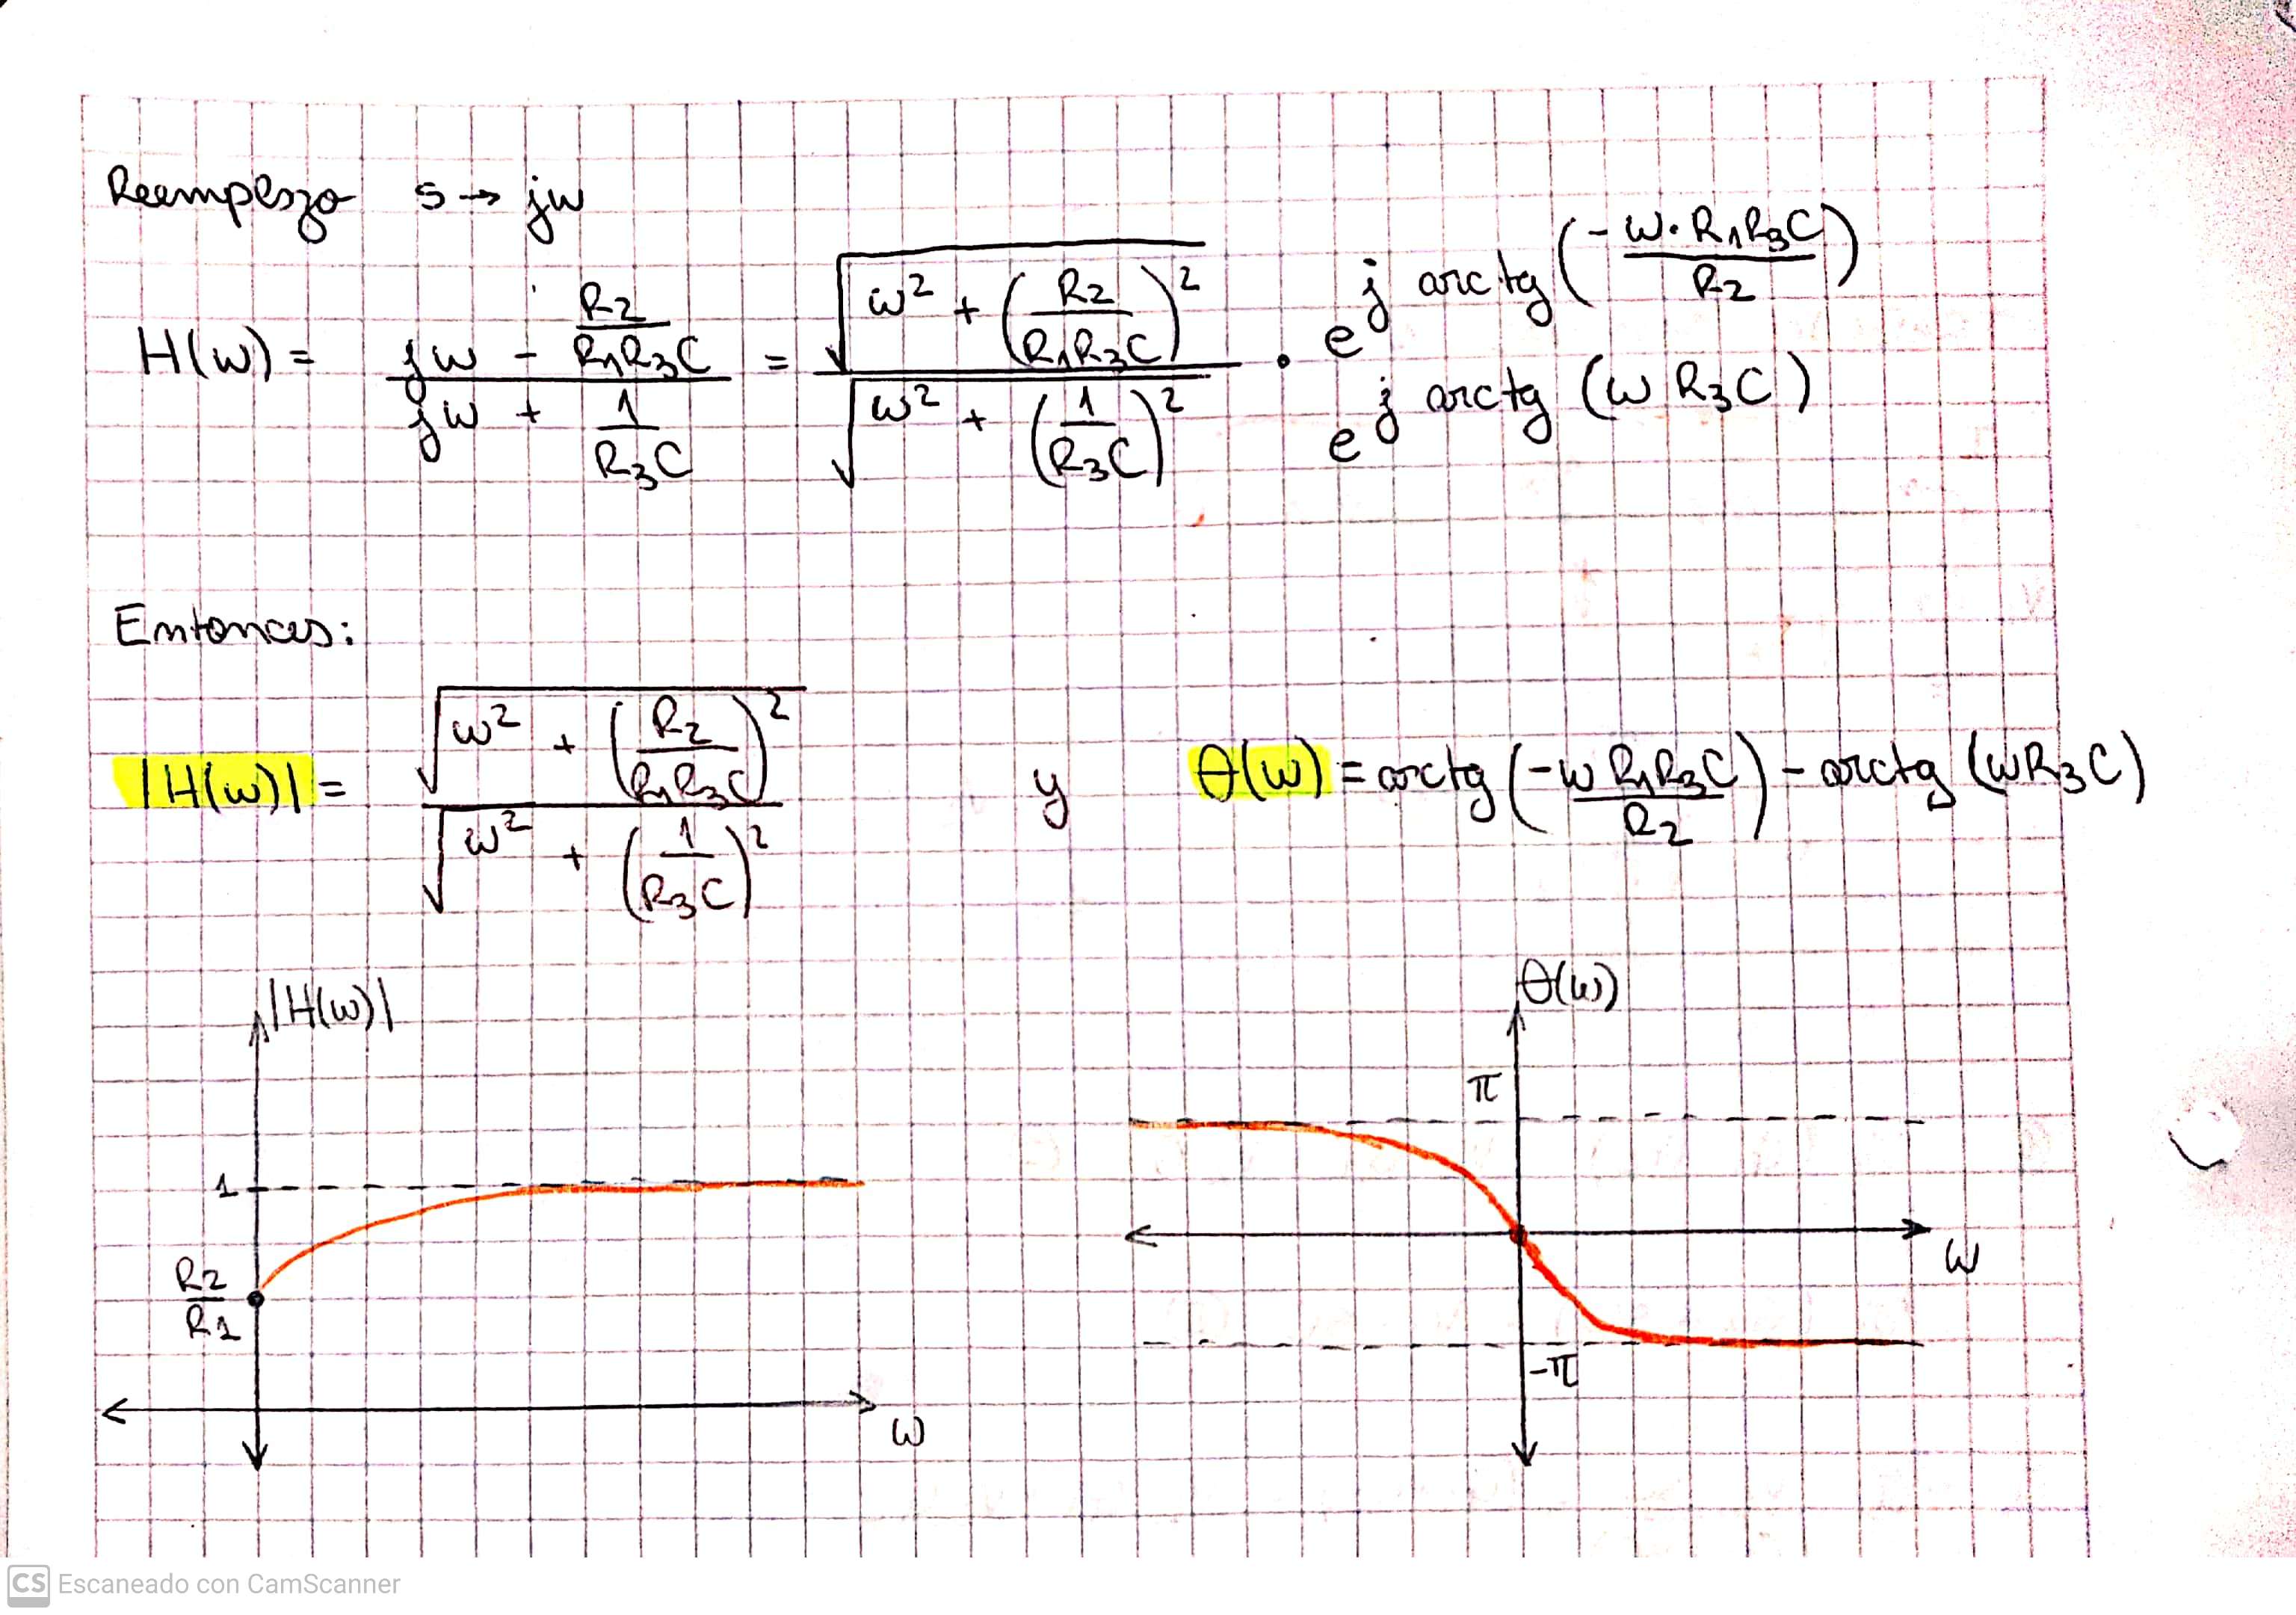 Reemplazo s → jw
H(w) = (jw - R2/(R1R3C)) / (jw + 1/(R3C)) = √(w² + (R2/(R1R3C))²) / √(w² + (1/(R3C))²) · e^(j arctg(-w·R1R3C/R2)) / e^(j arctg(wR3C))
Entonces:
|H(w)| = √(w² + (R2/(R1R3C))²) / √(w² + (1/(R3C))²) y θ(w) = arctg(-wR1R3C/R2) - arctg(wR3C)
|H(w)|
1
R2/R1
w
θ(w)
π
w
-π
CS Escaneado con CamScanner